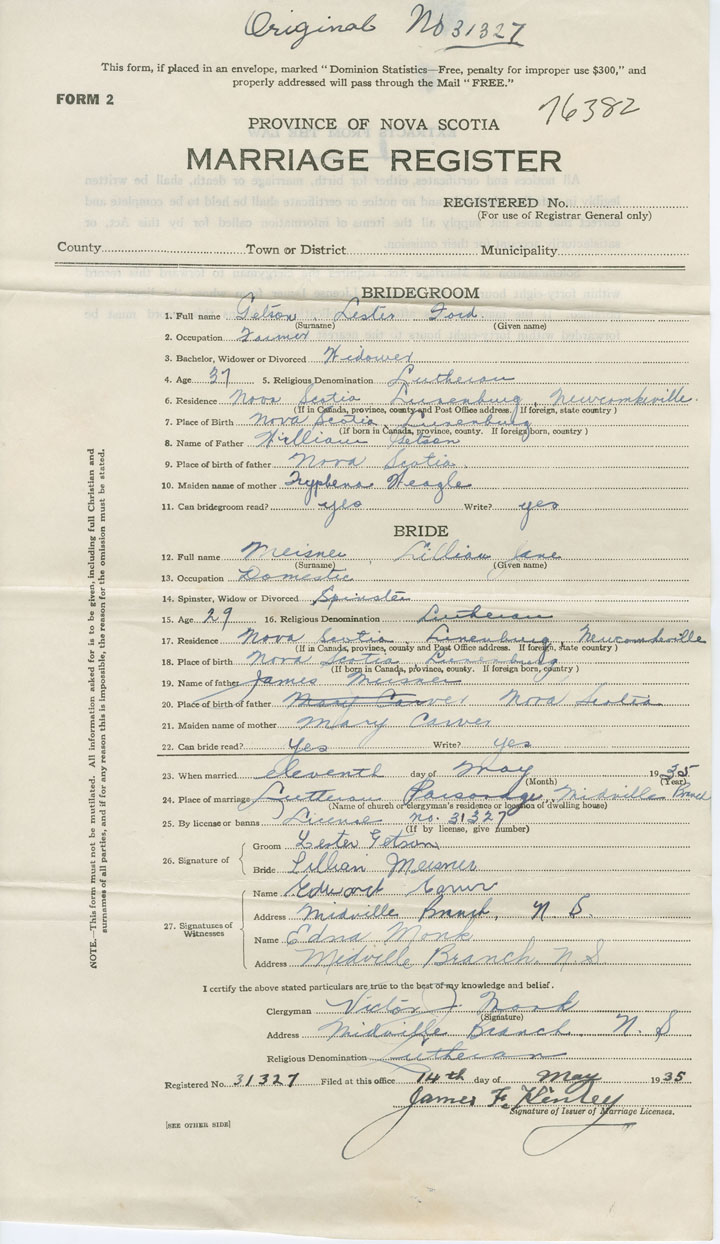 Original No 31327
This form, if placed in an envelope, marked "Dominion Statistics—Free, penalty for improper use $300," and
properly addressed will pass through the Mail "FREE."
FORM 2
76382
PROVINCE OF NOVA SCOTIA
MARRIAGE REGISTER
REGISTERED No.
(For use of Registrar General only)
County Town or District Municipality
BRIDEGROOM
1. Full name Getson Lester Ford
(Surname) (Given name)
2. Occupation Farmer
3. Bachelor, Widower or Divorced Widower
4. Age 37 5. Religious Denomination Lutheran
6. Residence Nova Scotia Lunenburg, Newcombville.
(If in Canada, province, county and Post Office address. If foreign, state country)
7. Place of Birth Nova Scotia Lunenburg
(If born in Canada, province, county. If foreign born, country)
8. Name of Father William Getson
9. Place of birth of father Nova Scotia.
10. Maiden name of mother Tryphena Weagle
11. Can bridegroom read? yes Write? yes
BRIDE
12. Full name Meisner Lillian Jane
(Surname) (Given name)
13. Occupation Domestic
14. Spinster, Widow or Divorced Spinster
15. Age 29 16. Religious Denomination Lutheran
17. Residence Nova Scotia, Lunenburg, Newcombville
(If in Canada, province, county and Post Office address. If foreign, state country)
18. Place of birth Nova Scotia Lunenburg
(If born in Canada, province, county. If foreign born, country)
19. Name of father James Meisner
20. Place of birth of father Mary Carver Nova Scotia
21. Maiden name of mother Mary Carver
22. Can bride read? Yes Write? yes
23. When married eleventh day of May 1935
(Month) (Year)
24. Place of marriage Lutheran Parsonage, Midville Branch
(Name of church or clergyman's residence or location of dwelling house)
25. By license or banns License no. 31327
(If by license, give number)
26. Signature of Groom Lester Getson
Bride Lillian Meisner
27. Signatures of Witnesses Name Edward Carver
Address Midville Branch, N S.
Name Edna Monk
Address Midville Branch, N.S.
I certify the above stated particulars are true to the best of my knowledge and belief.
Clergyman Victor J. Monk
(Signature)
Address Midville Branch, N. S
Religious Denomination Lutheran
Registered No. 31327 Filed at this office 14th day of May 1935
James F. Kinley
Signature of Issuer of Marriage Licenses.
[SEE OTHER SIDE]
NOTE.—This form must not be mutilated. All information asked for is to be given, including full Christian and
surnames of all parties, and if for any reason this is impossible, the reason for the omission must be stated.